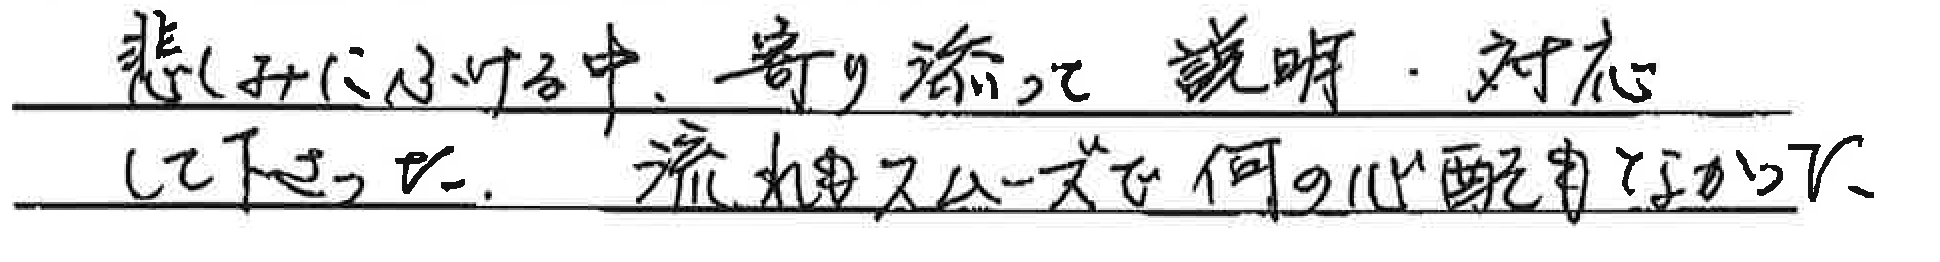 悲しみにふける中、寄り添って 説明・対応
して下さった。 流れもスムーズで何の心配もなかった